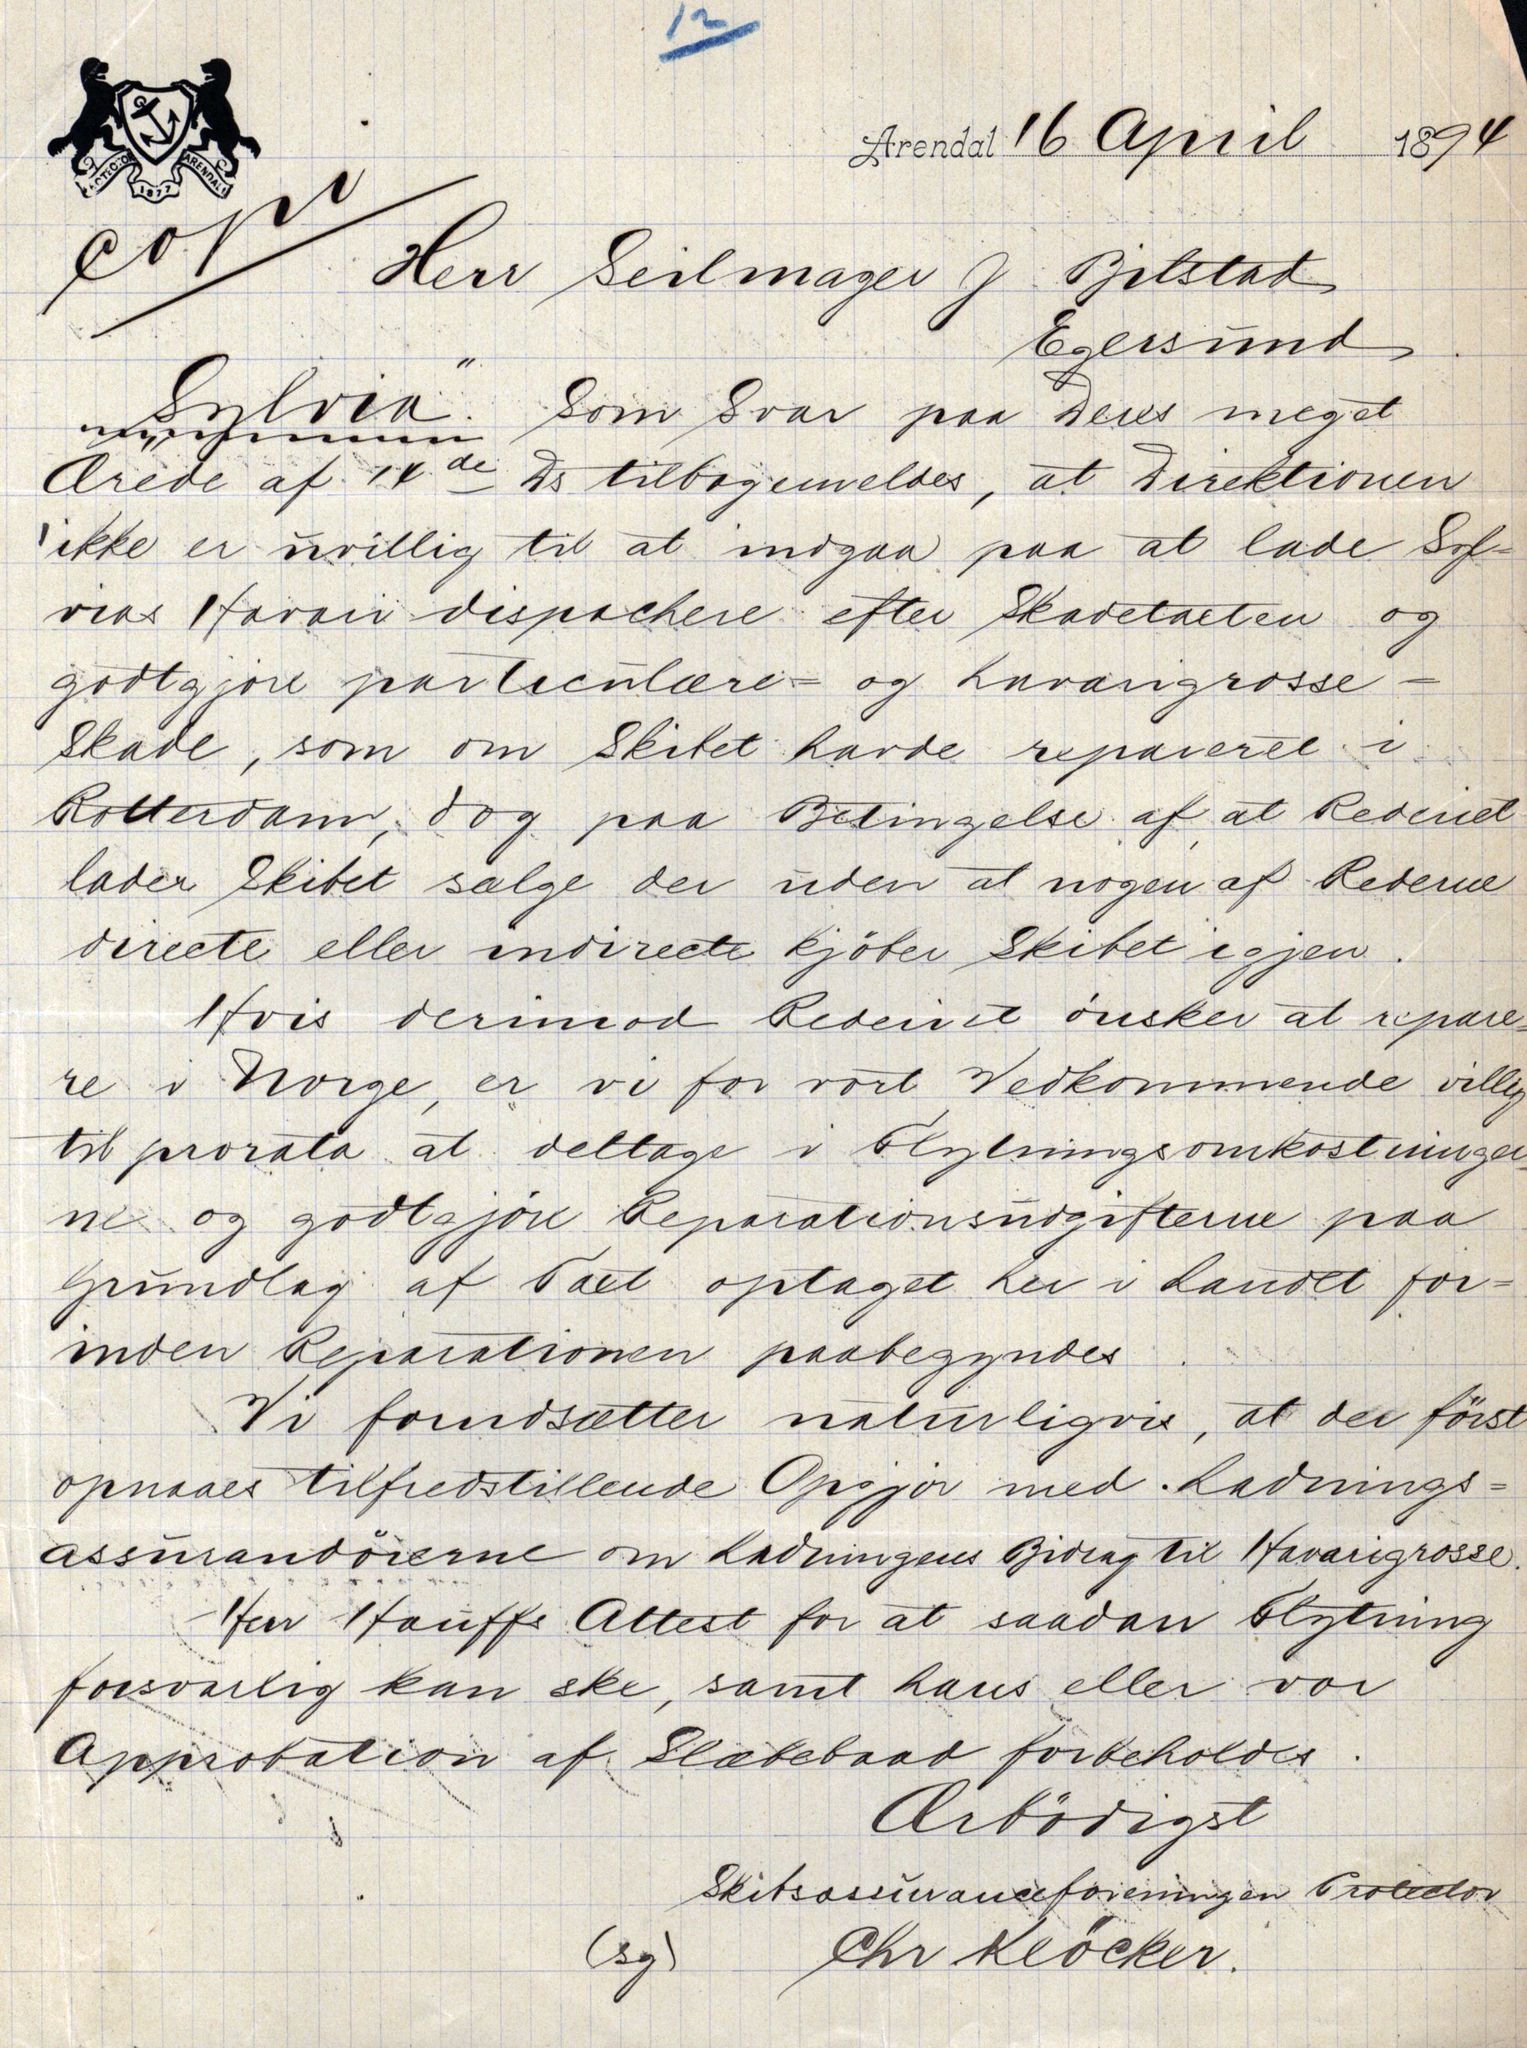 12
PROTECTOR ARENDAL
1877
Arendal 16 April 1894
Copi
Herr Seilmager J Bilstad
Egersund
"Sylvia". Som Svar paa Deres meget
Ærede af 14de Ds tilbagemeldes, at Direktionen
ikke er uvillig til at indgaa paa at lade Syl=
vias Havari dispachere efter Skadetaxten og
godtgjøre particulære= og havarigrosse=
Skade, som om Skibet havde repareret i
Rotterdam, dog paa Betingelse af at Rederiet
lader Skibet sælge der uden at nogen af Rederne
directe eller indirecte kjöber Skibet igjen.
Hvis derimod Rederiet önsker at repare=
re i Norge, er vi for vort Vedkommende villig
til prorata at deltage i Flytningsomkostninger=
ne og godtgjöre Reparationsudgifterne paa
Grundlag af Taxt optaget her i Landet for=
inden Reparationen paabegyndes.
Vi forudsætter naturligvis, at der först
opnaaes tilfredstillende Opgjör med Ladnings=
assurandörerne om Ladningens Bidrag til Havarigrosse.
Herr Hauffs Attest for at saadan Flytning
forsvarlig kan ske, samt hans eller vor
Approbation af Slæbebaad forbeholdes.
Ærbödigst
Skibsassuranceforeningen Protector
(sg) Chr Klöcker.